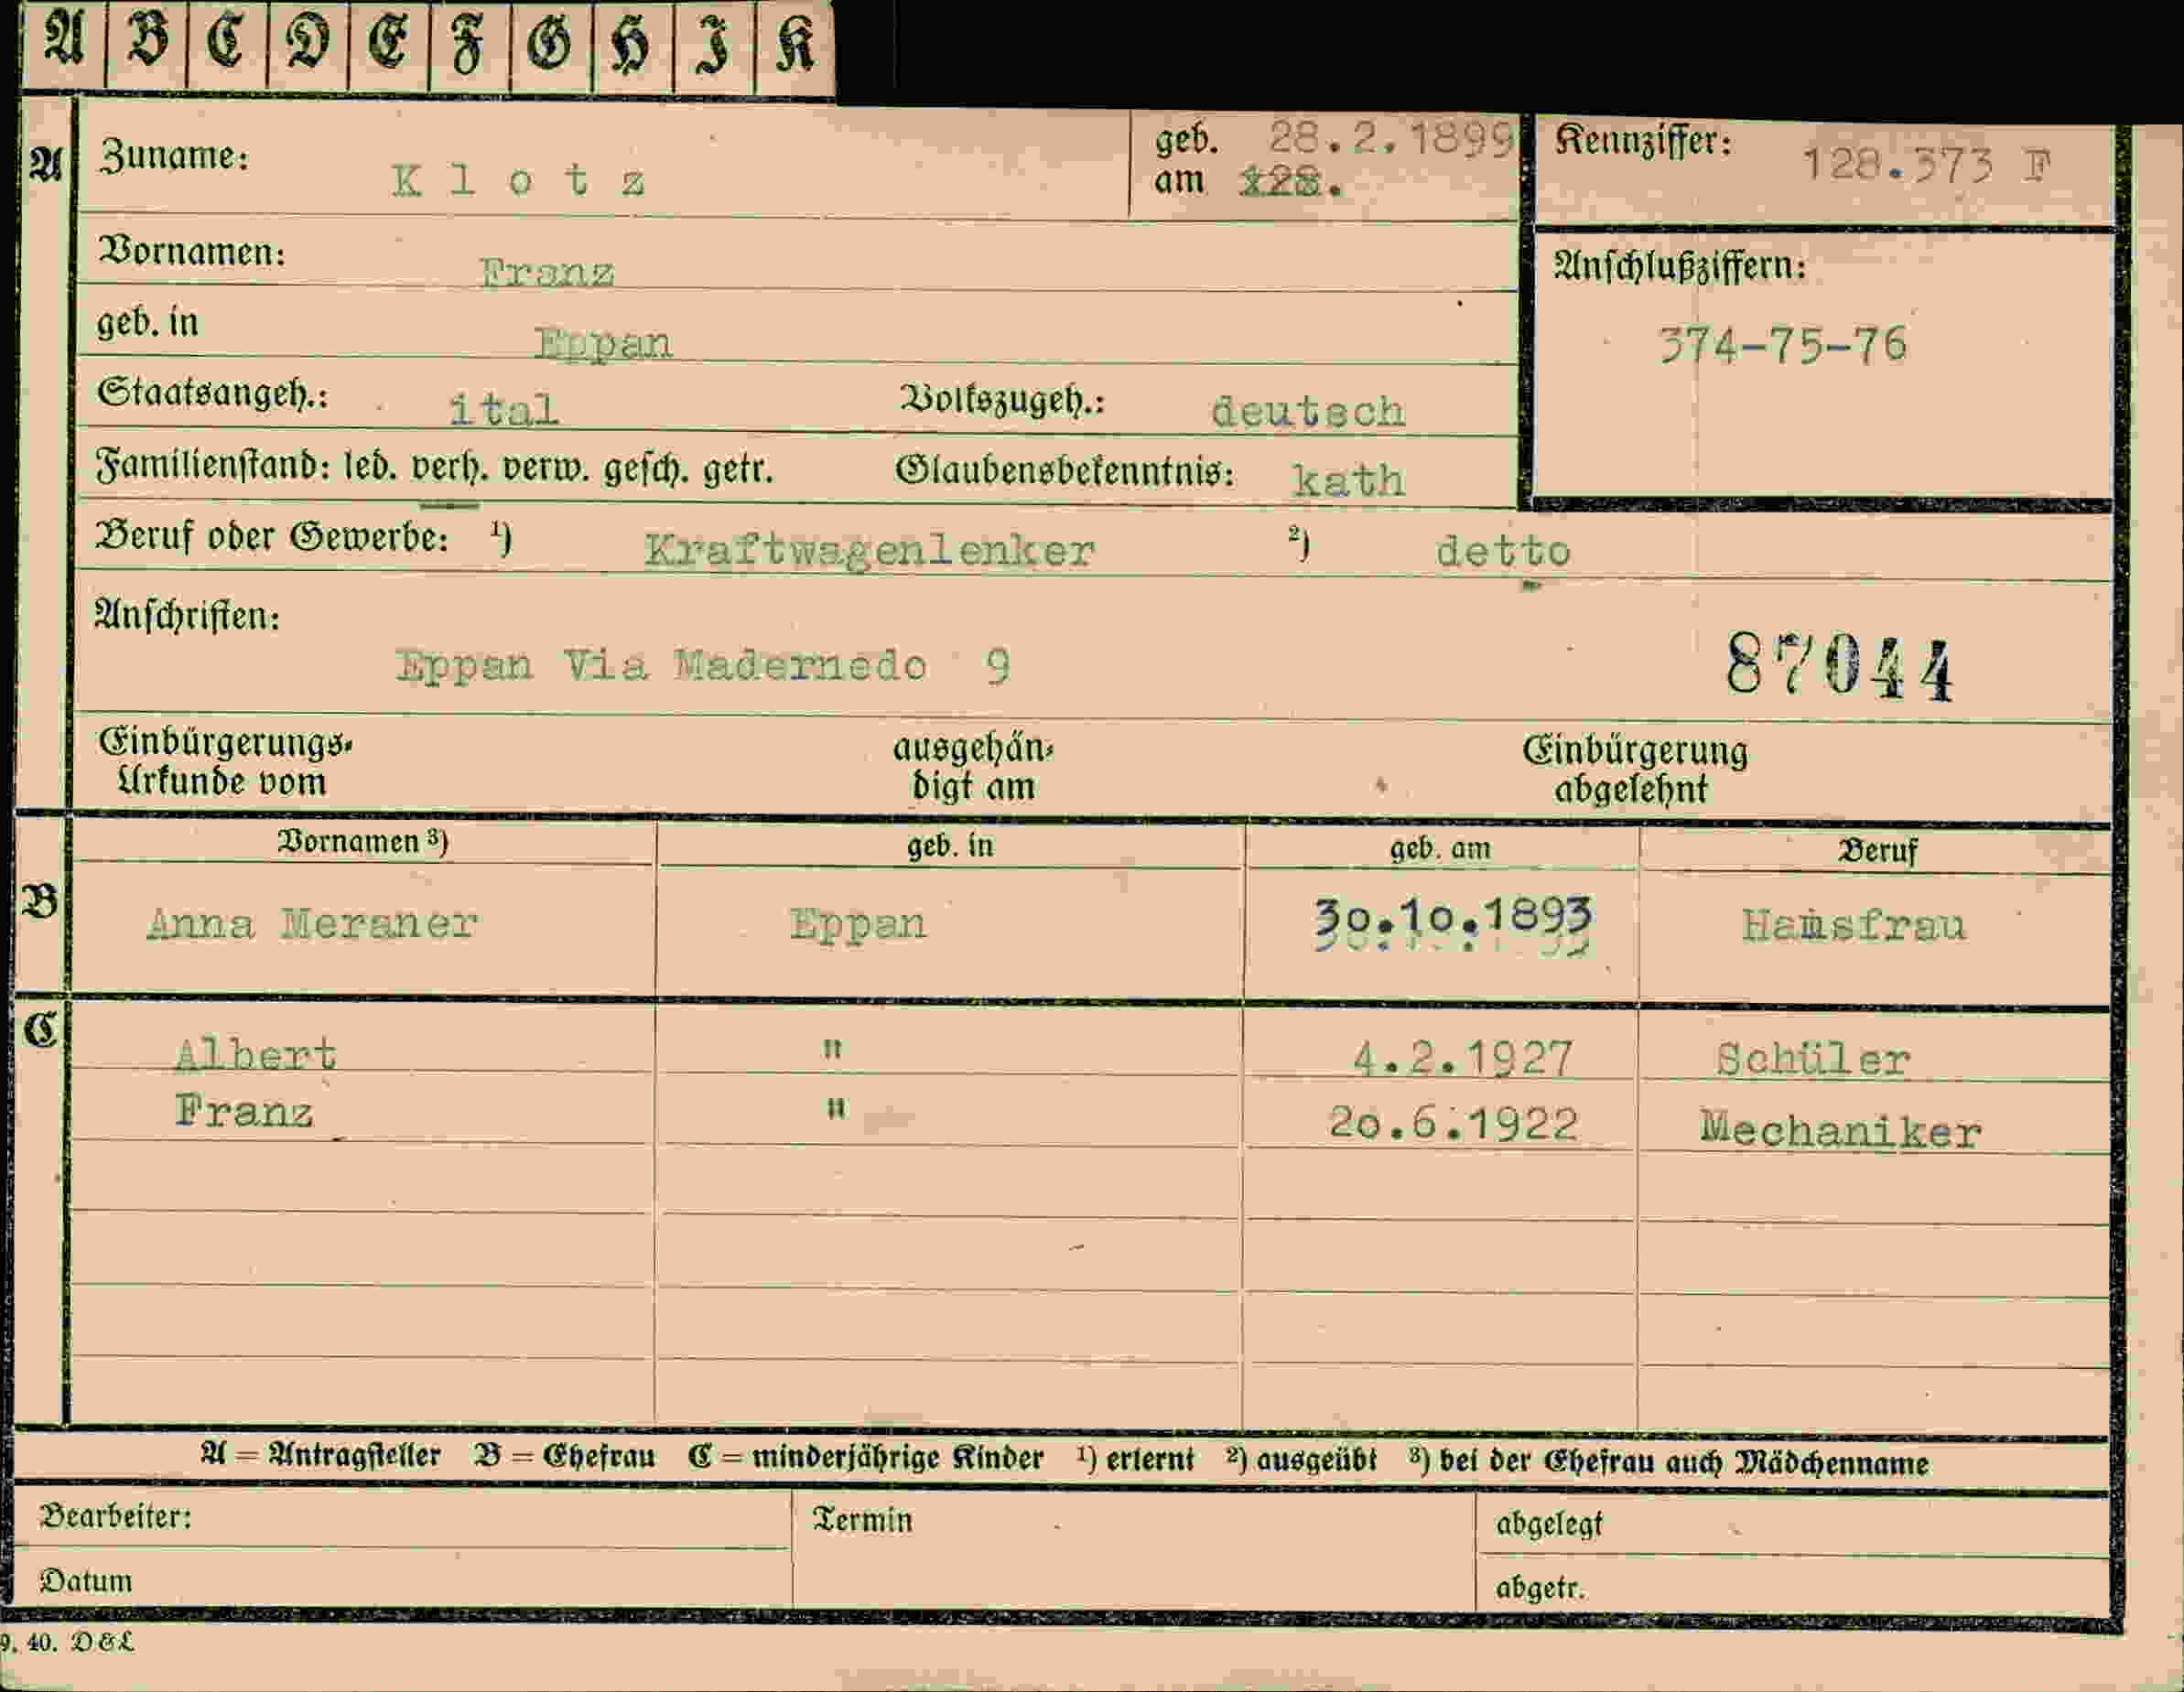 A B C D E F G H I K
A Zuname: Klotz geb. am 28.2.1899 Kennziffer: 128.373 F
Vornamen: Franz
Anschlußziffern:
geb. in Eppan
374-75-76
Staatsangeh.: ital Volkszugeh.: deutsch
Familienstand: led. verh. verw. gesch. getr. Glaubensbekenntnis: kath
Beruf oder Gewerbe: 1) Kraftwagenlenker 2) detto
Anschriften:
Eppan Via Madernedo 9 87044
Einbürgerungs- ausgehän- Einbürgerung
Urkunde vom digt am abgelehnt
Vornamen 3) geb. in geb. am Beruf
B Anna Meraner Eppan 30.10.1893 Hausfrau
C Albert " 4.2.1927 Schüler
Franz " 20.6.1922 Mechaniker
A = Antragsteller B = Ehefrau C = minderjährige Kinder 1) erlernt 2) ausgeübt 3) bei der Ehefrau auch Mädchenname
Bearbeiter: Termin abgelegt
Datum abgetr.
9. 40. D & L